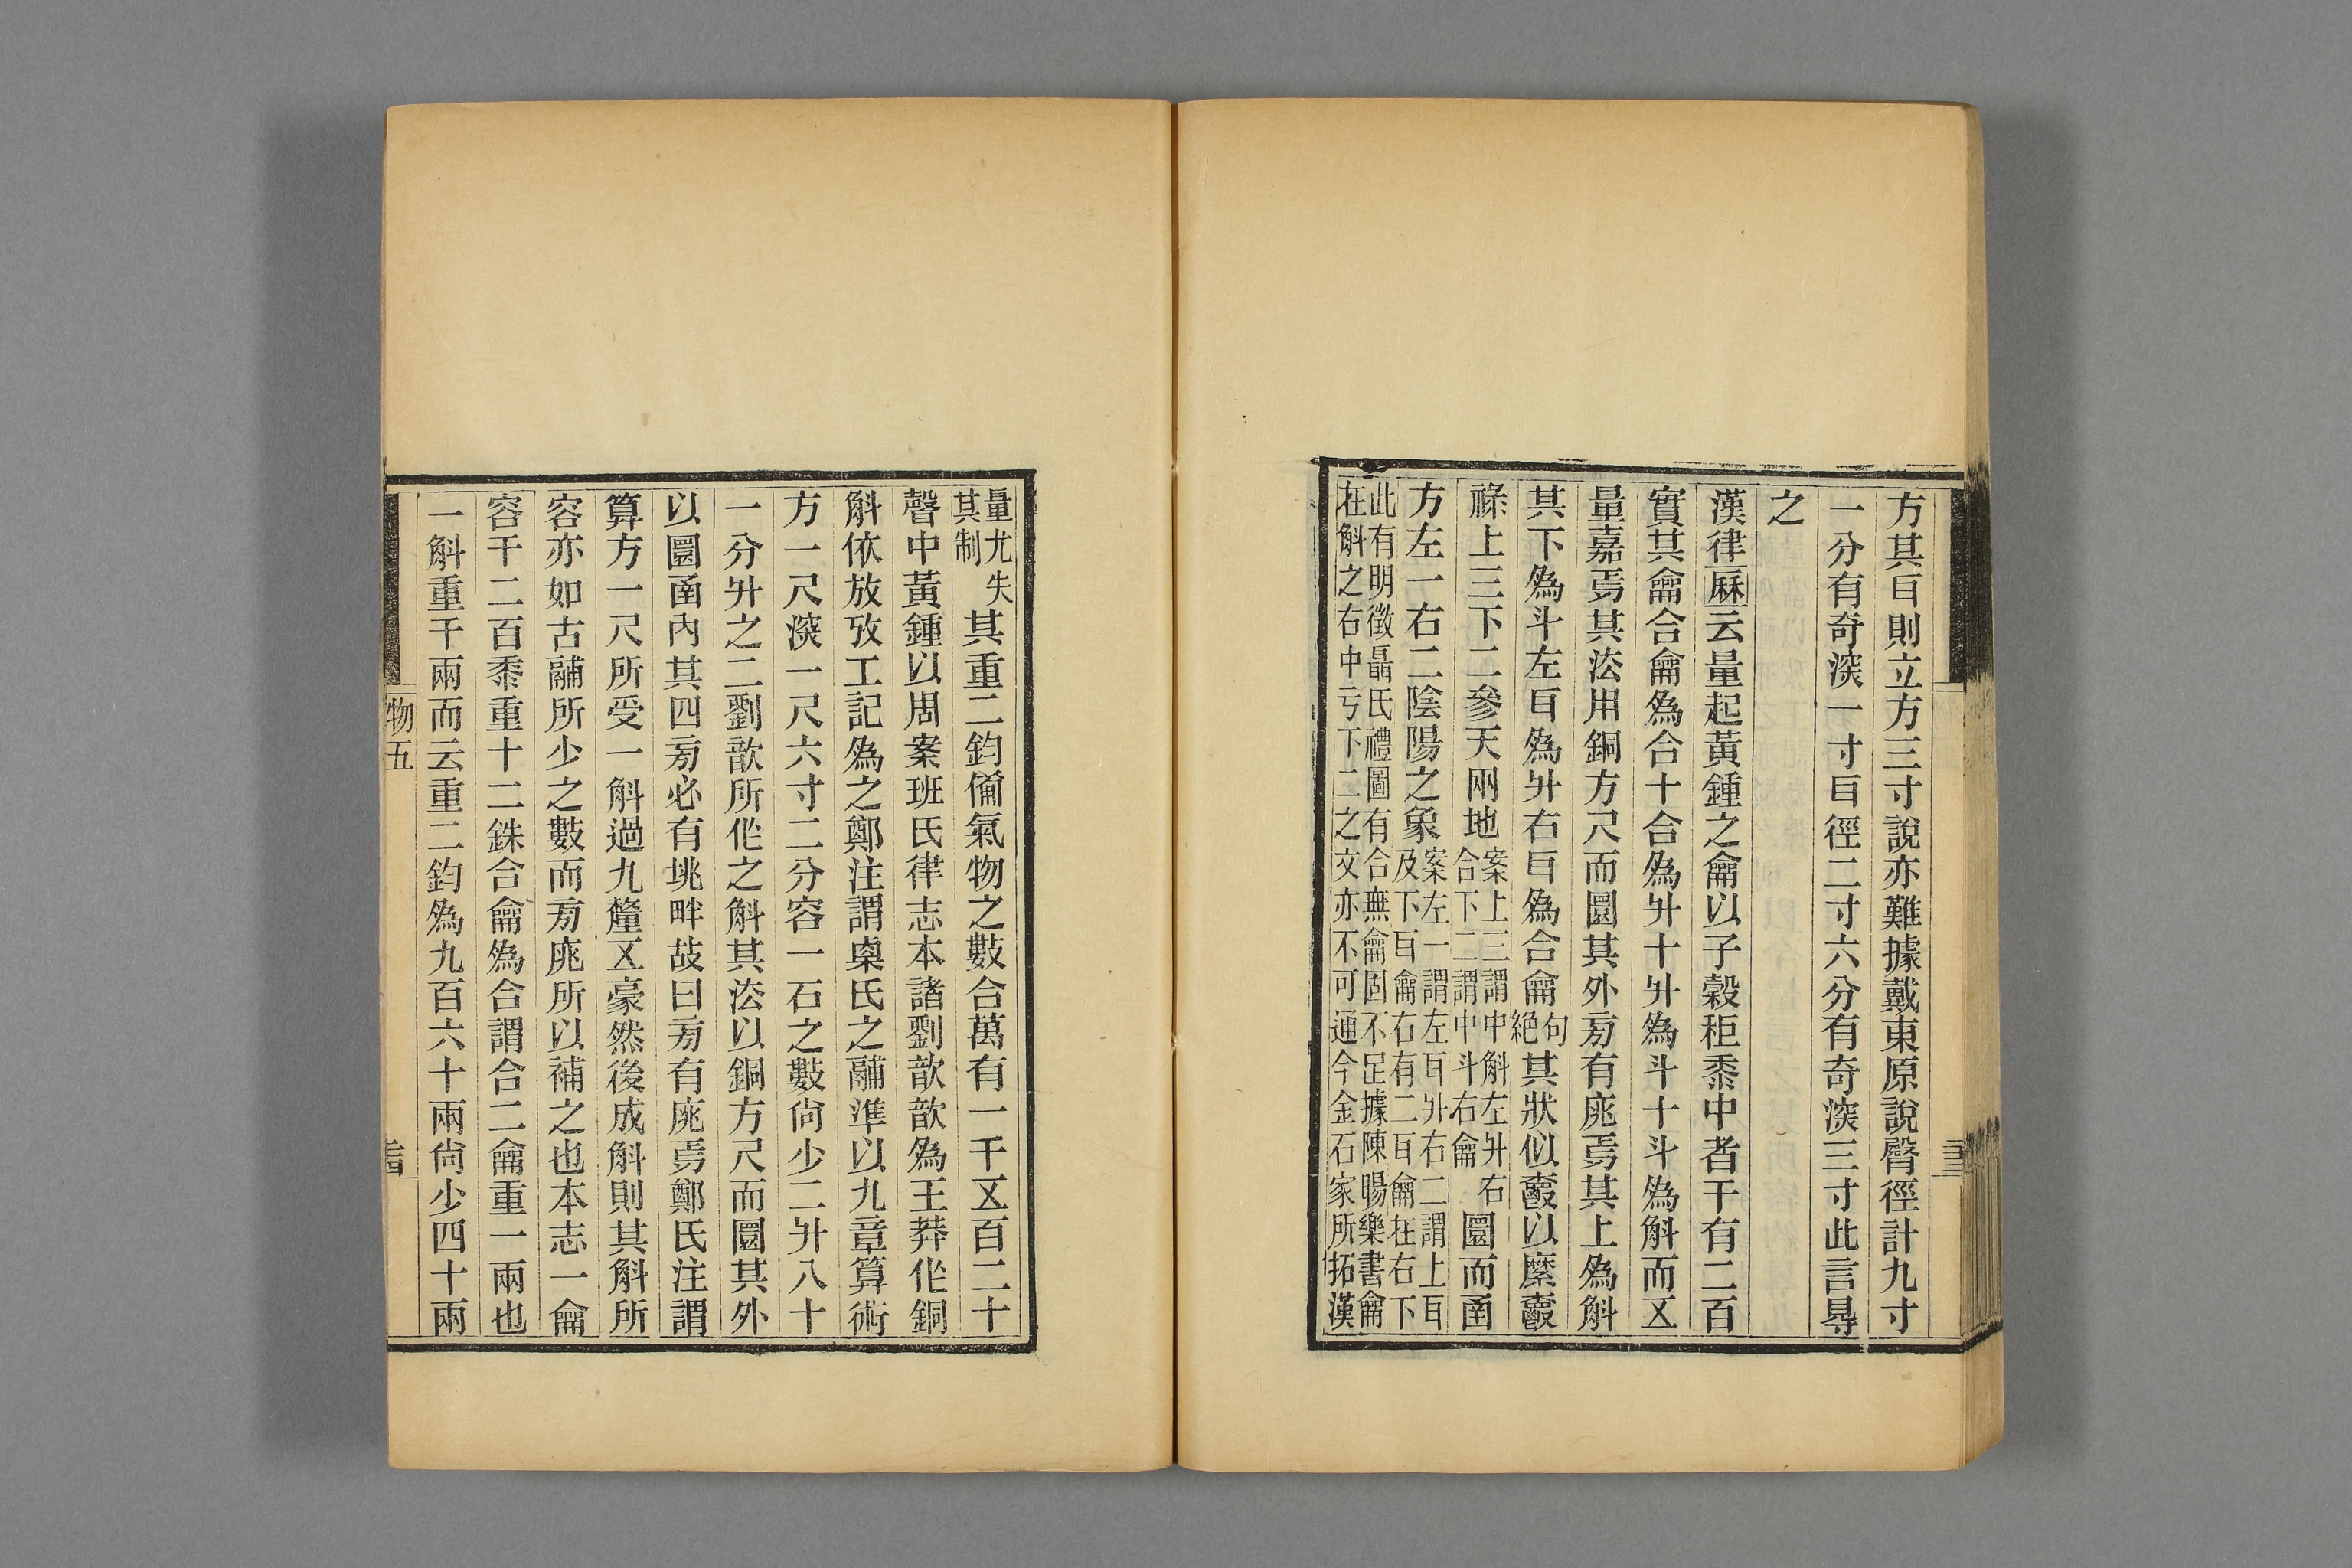 方其𦣝則立方三寸說亦難據戴東原說臀徑計九寸
一分有奇深一寸𦣝徑二寸六分有奇深三寸此言㝵
之
漢律厤云量起黃鍾之龠以子穀秬黍中者千有二百
實其龠合龠為合十合為升十升為斗十斗為斛而㐅
量嘉焉其㳒用銅方尺而圜其外㫄有庣焉其上為斛
其下為斗左耳為升右耳為合龠句絕其狀似爵以縻爵
祿上三下二參天兩地案上三謂中斛左升右
合下二謂中斗右龠圜而函
方左一右二陰陽之象案左一謂左耳升右二謂上耳
及下耳龠右有二耳龠在右下
此有明徵聶氏禮圖有合無龠固不足據陳暘樂書龠
在斛之右中亏下二之文亦不可通今金石家所拓漢
量尤失
其制其重二鈞僃氣物之數合萬有一千㐅百二十
聲中黃鍾以周案班氏律志本諸劉歆歆為王莽作銅
斛依放攷工記為之鄭注謂㮚氏之鬴準以九章算術
方一尺深一尺六寸二分容一石之數尙少二升八十
一分升之二劉歆所作之斛其㳒以銅方尺而圜其外
以圜函內其四㫄必有垗畔故曰㫄有庣焉鄭氏注謂
算方一尺所受一斛過九釐㐅豪然後成斛則其斛所
容亦如古鬴所少之數而㫄庣所以補之也本志一龠
容千二百黍重十二銖合龠為合謂合二龠重一兩也
一斛重千兩而云重二鈞為九百六十兩尙少四十兩
物五